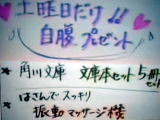 土曜日だけ!!
自腹プレゼント
* 角川文庫 文庫本セット5冊セット
* はさんでスッキリ
振動マッサージ機